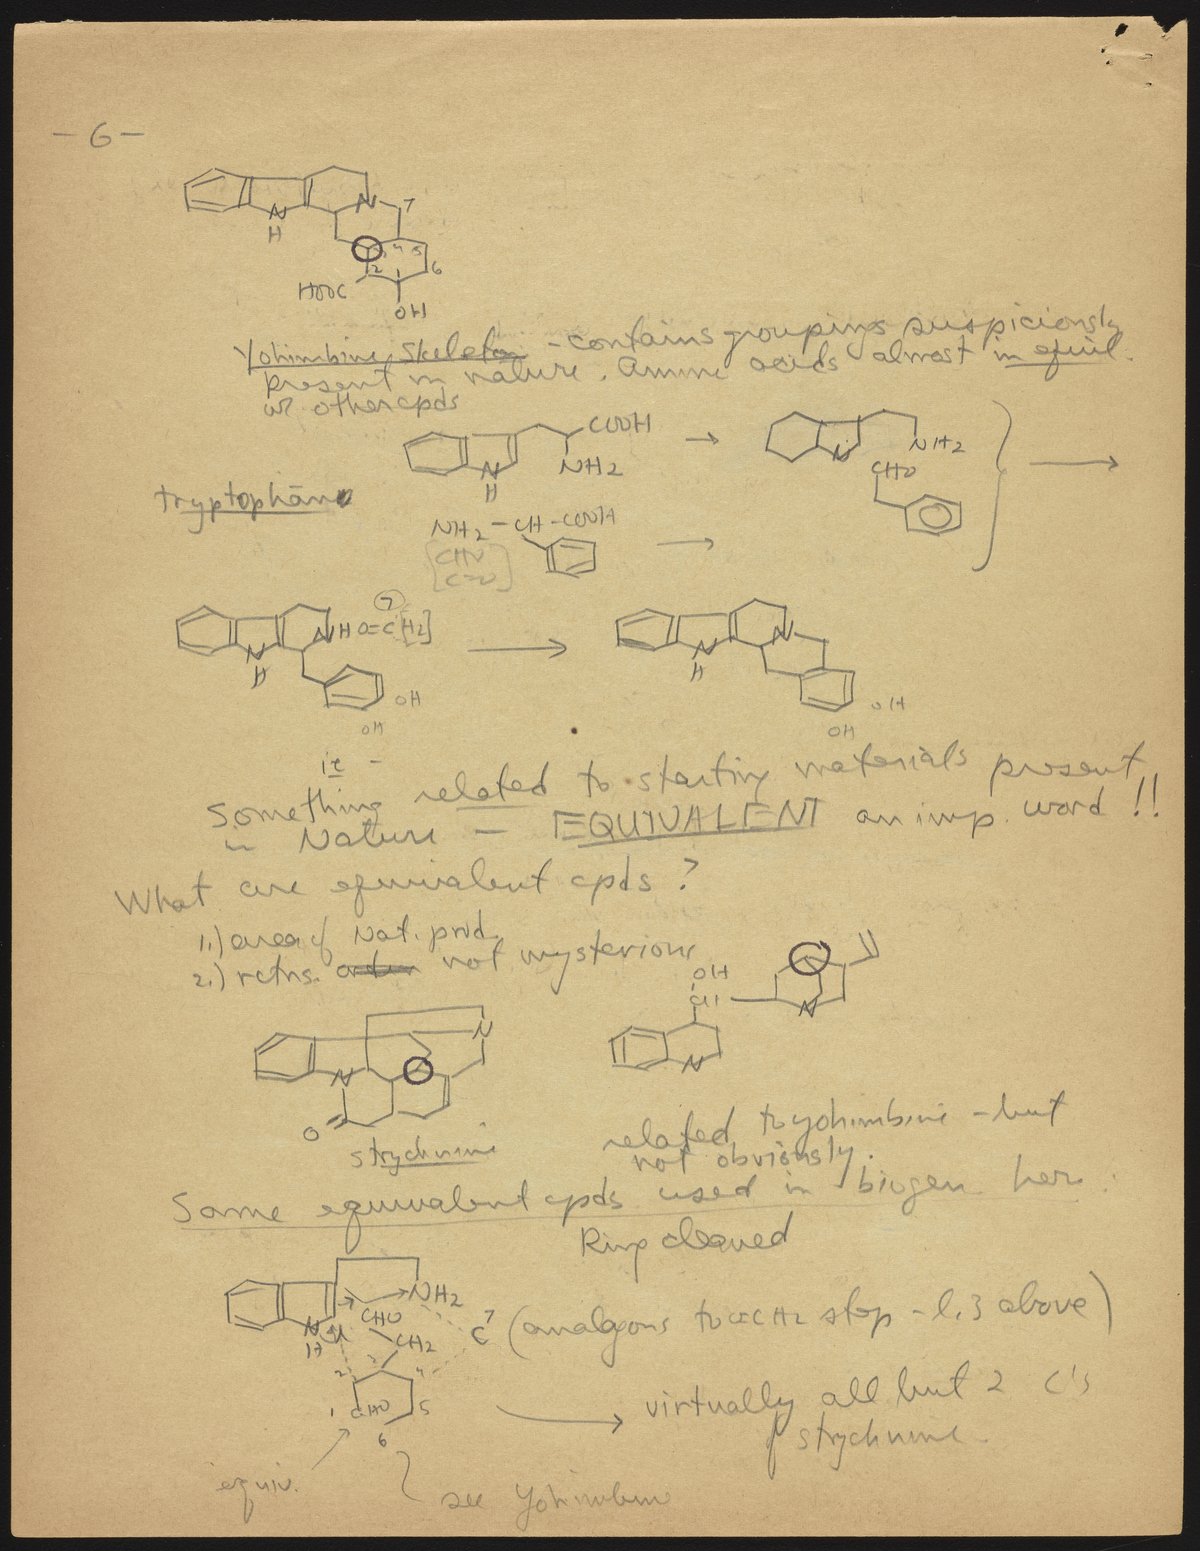 - 6 -
N
H
N
7
3 4 5
2
6
HOOC
OH
Yohimbine Skeleton - contains groupings suspiciously
present in nature. Amine acids almost in equil.
w? other cpds
COOH
NH2
N
H
NH2
N
CHO
tryptophane
NH2 - CH - COOH
[CHO
C=O]
7
NH O=C[H2]
N
H
OH
OH
N
N
H
OH
OH
ie -
Something related to starting materials present
in Nature - EQUIVALENT an imp. word !!
What are equivalent cpds?
1.) area of Nat. prod.
2.) rctns. not mysterious
OH
CH
N
N
N
N
O
strychnine
related to yohimbine - but
not obviously.
Same equivalent cpds used in biogen. here:
Ring cleaved
NH2
CHO
CH2
N
H
C 7
(analogous to O=CH2 step - l. 3 above)
2 3 4
1 CHO 5
6
virtually all but 2 C's
of strychnine
equiv.
see Yohimbine